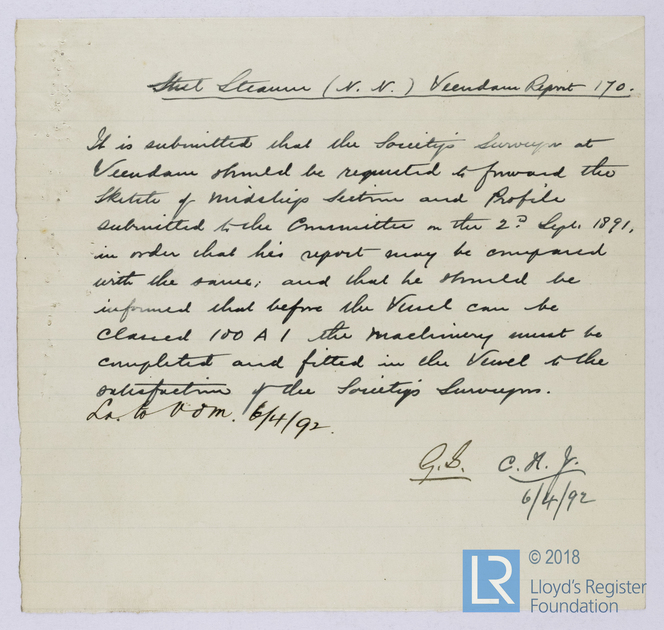 Steel Steamer (N. N.) Veendam Report 170.
It is submitted that the Society's Surveyor at
Veendam should be requested to forward the
Sketch of Midship Section and Profile
submitted to the Committee on the 2d Sept. 1891,
in order that his report may be compared
with the same; and that he should be
informed that before the Vessel can be
Classed 100 A 1 the Machinery must be
completed and fitted in the Vessel to the
satisfaction of the Society's Surveyors.
La. to 6/4/92.
G.S. C. H. J.
6/4/92
LR © 2018
Lloyd's Register
Foundation